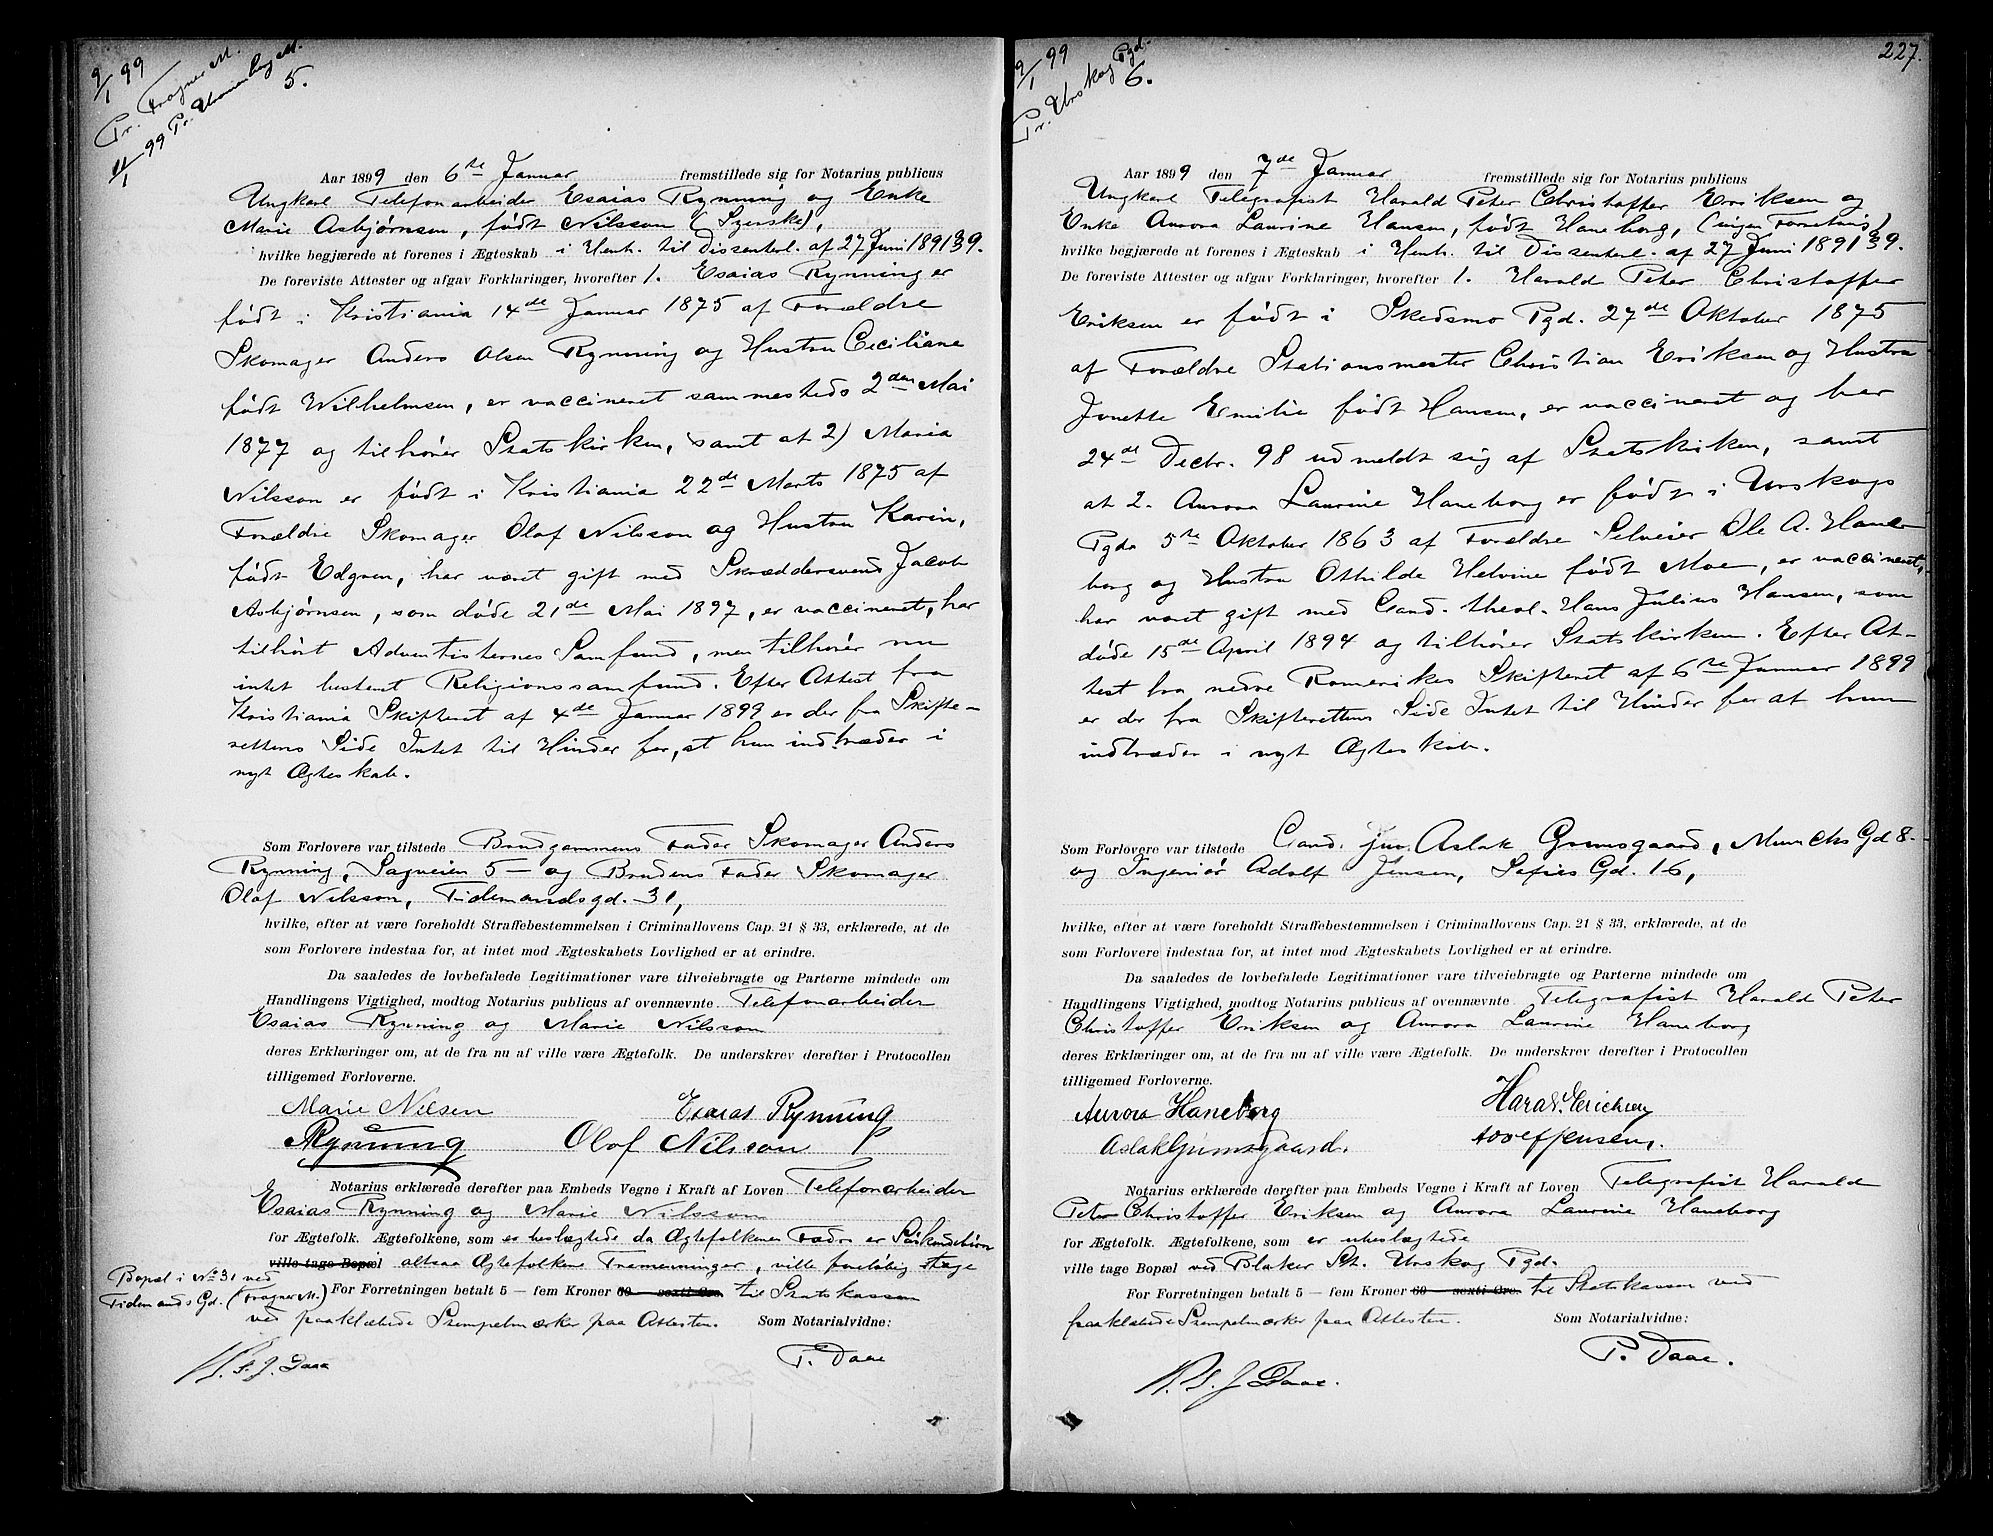 9/1 99
Pr. Frogner M.
11/1 99 Pr. Uranienborg M.
5.
Aar 1899 den 6te Januar fremstillede sig for Notarius publicus
Ungkarl Telefonarbeider Esaias Rynning og Enke
Marie Asbjørnsen, født Nilsson (Svenske),
hvilke begjærede at forenes i Ægteskab i Henh. til Dissenterl. af 27 Juni 1891 § 9.
De foreviste Attester og afgav Forklaringer, hvorefter 1. Esaias Rynning er
født i Kristiania 14de Januar 1875 af Forældre
Skomager Anders Olsen Rynning og Hustru Ceciliane
født Wilhelmsen, er vaccineret sammesteds 2den Mai
1877 og tilhører Statskirken, samt at 2) Maria
Nilsson er født i Kristiania 22de Marts 1875 af
Forældre Skomager Olof Nilsson og Hustru Karin,
født Edgren, har været gift med Skræddersvend Jacob
Asbjørnsen, som døde 21de Mai 1897, er vaccineret, har
tilhørt Adventisternes Samfund, men tilhører nu
intet bestemt Religionssamfund. Efter Attest fra
Kristiania Skifteret af 4de Januar 1899 er der fra Skifte-
rettens Side Intet til Hinder for, at hun indtræder i
nyt Ægteskab.
Som Forlovere var tilstede Brudgommens Fader Skomager Anders
Rynning, Sagveien 5 — og Brudens Fader Skomager
Olof Nilsson, Tidemandsgd. 31,
hvilke, efter at være foreholdt Straffebestemmelsen i Criminallovens Cap. 21 § 33, erklærede, at de
som Forlovere indestaa for, at intet mod Ægteskabets Lovlighed er at erindre.
Da saaledes de lovbefalede Legitimationer vare tilveiebragte og Parterne mindede om
Handlingens Vigtighed, modtog Notarius publicus af ovennævnte Telefonarbeider
Esaias Rynning og Marie Nilsson
deres Erklæringer om, at de fra nu af ville være Ægtefolk. De underskrev derefter i Protocollen
tilligemed Forloverne.
Marie Nilsen Esaias Rynning
A Rynning Olof Nilsson
Notarius erklærede derefter paa Embeds Vegne i Kraft af Loven Telefonarbeider
Esaias Rynning og Marie Nilsson
for Ægtefolk. Ægtefolkene, som er beslægtede da Ægtefolkenes Fædre er Søskendebørn
ville tage Bopæl altsaa Ægtefolkene Tremenninger, ville foreløbig tage
Bopæl i No 31 ved
Tidemands Gd. (Frogner M.)
For Forretningen betalt 5 — fem Kroner 60 — sexti Øre. til Statskassen
ved paaklæbede Stempelmærker paa Attesten. Som Notarialvidne:
P. Daae
6.
9/1 99
Pr. Urskog Pgd.
227.
Aar 1899 den 7de Januar fremstillede sig for Notarius publicus
Ungkarl Telegrafist Harald Peter Christoffer Eriksen og
Enke Aurora Laurine Hansen, født Haneborg, (ingen Forretnis)
hvilke begjærede at forenes i Ægteskab i Henh. til Dissenterl. af 27 Juni 1891 § 9.
De foreviste Attester og afgav Forklaringer, hvorefter 1. Harald Peter Christoffer
Eriksen er født i Skedsmo Pgd. 27de Oktober 1875
af Forældre Stationsmester Christian Eriksen og Hustru
Jonette Emilie født Hansen, er vaccineret og har
24de Decbr. 98 udmeldt sig af Statskirken, samt
at 2. Aurora Laurine Haneborg er født i Urskogs
Pgds 5te Oktober 1863 af Forældre Selveier Ole A. Hane-
borg og Hustru Othilde Helvine født Moe, er vaccineret,
har været gift med Cand. theol. Hans Julius Hansen, som
døde 15de April 1894 og tilhører Statskirken. Efter At-
test fra nedre Romerikes Skifteret af 6te Januar 1899
er der fra Skifterettens Side Intet til Hinder for at hun
indtræder i nyt Ægteskab.
Som Forlovere var tilstede Cand. jur. Aslak Grimsgaard, Munchs Gd 8-
og Ingeniør Adolf Jensen, Sofies Gd. 16,
hvilke, efter at være foreholdt Straffebestemmelsen i Criminallovens Cap. 21 § 33, erklærede, at de
som Forlovere indestaa for, at intet mod Ægteskabets Lovlighed er at erindre.
Da saaledes de lovbefalede Legitimationer vare tilveiebragte og Parterne mindede om
Handlingens Vigtighed, modtog Notarius publicus af ovennævnte Telegrafist Harald Peter
Christoffer Eriksen og Aurora Laurine Haneborg
deres Erklæringer om, at de fra nu af ville være Ægtefolk. De underskrev derefter i Protocollen
tilligemed Forloverne.
Aurora Haneborg Harald Erichsen
Aslak Grimsgaard. Adolf Jensen.
Notarius erklærede derefter paa Embeds Vegne i Kraft af Loven Telegrafist Harald
Peter Christoffer Eriksen og Aurora Laurine Haneborg
for Ægtefolk. Ægtefolkene, som er ubeslægtede
ville tage Bopæl ved Blaker St. Urskog Pgd.
For Forretningen betalt 5 — fem Kroner 60 — sexti Øre. til Statskassen ved
paaklæbede Stempelmærker paa Attesten. Som Notarialvidne:
P. Daae.